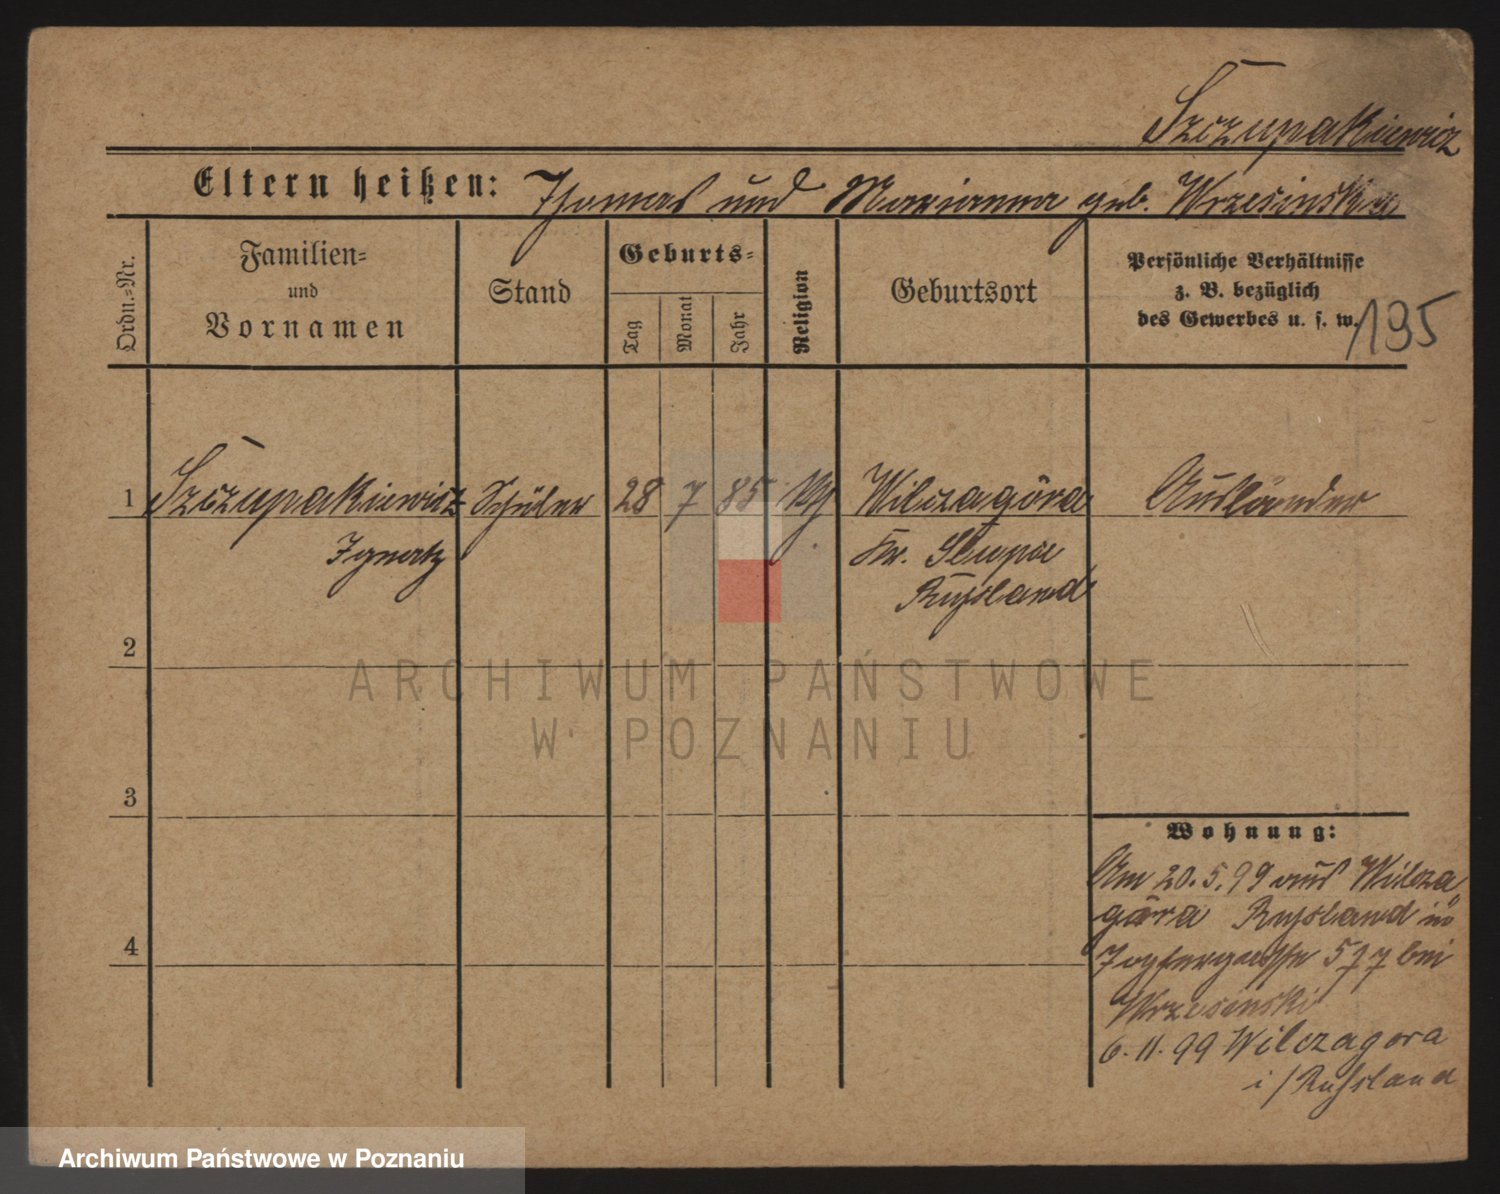 Szczupakiewicz
Eltern heißen: Thomas und Marianna geb. Wrzesinska
Ordn.=Nr.
Familien=
und
Vornamen
Stand
Geburts=
Tag
Monat
Jahr
Religion
Geburtsort
Persönliche Verhältnisse
z. B. bezüglich
des Gewerbes u. s. w.
195
1 Szczupakiewicz Schüler 28 7 85 Wilczagóra Ausländer
Ignatz Kr. Slupca
Russland
2
ARCHIWUM PAŃSTWOWE
W POZNANIU
3
Wohnung:
Am 20.5.99 aus Wilcza
góra Russland in
577 bei
Wrzesinski
6.11.99 Wilczagora
i/Russland
4
Archiwum Państwowe w Poznaniu